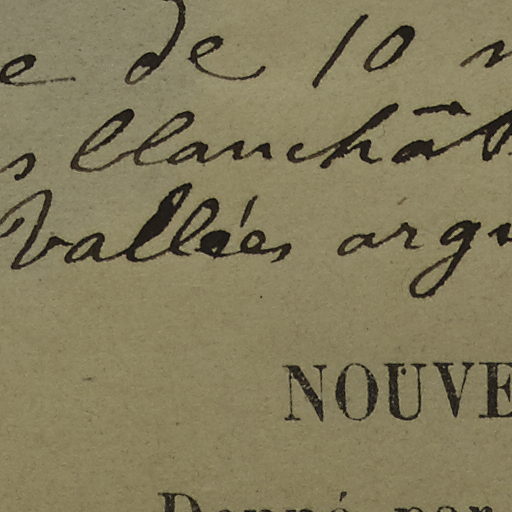 e de 10
s blanchât
Vallées argu
NOUVE
Donné par